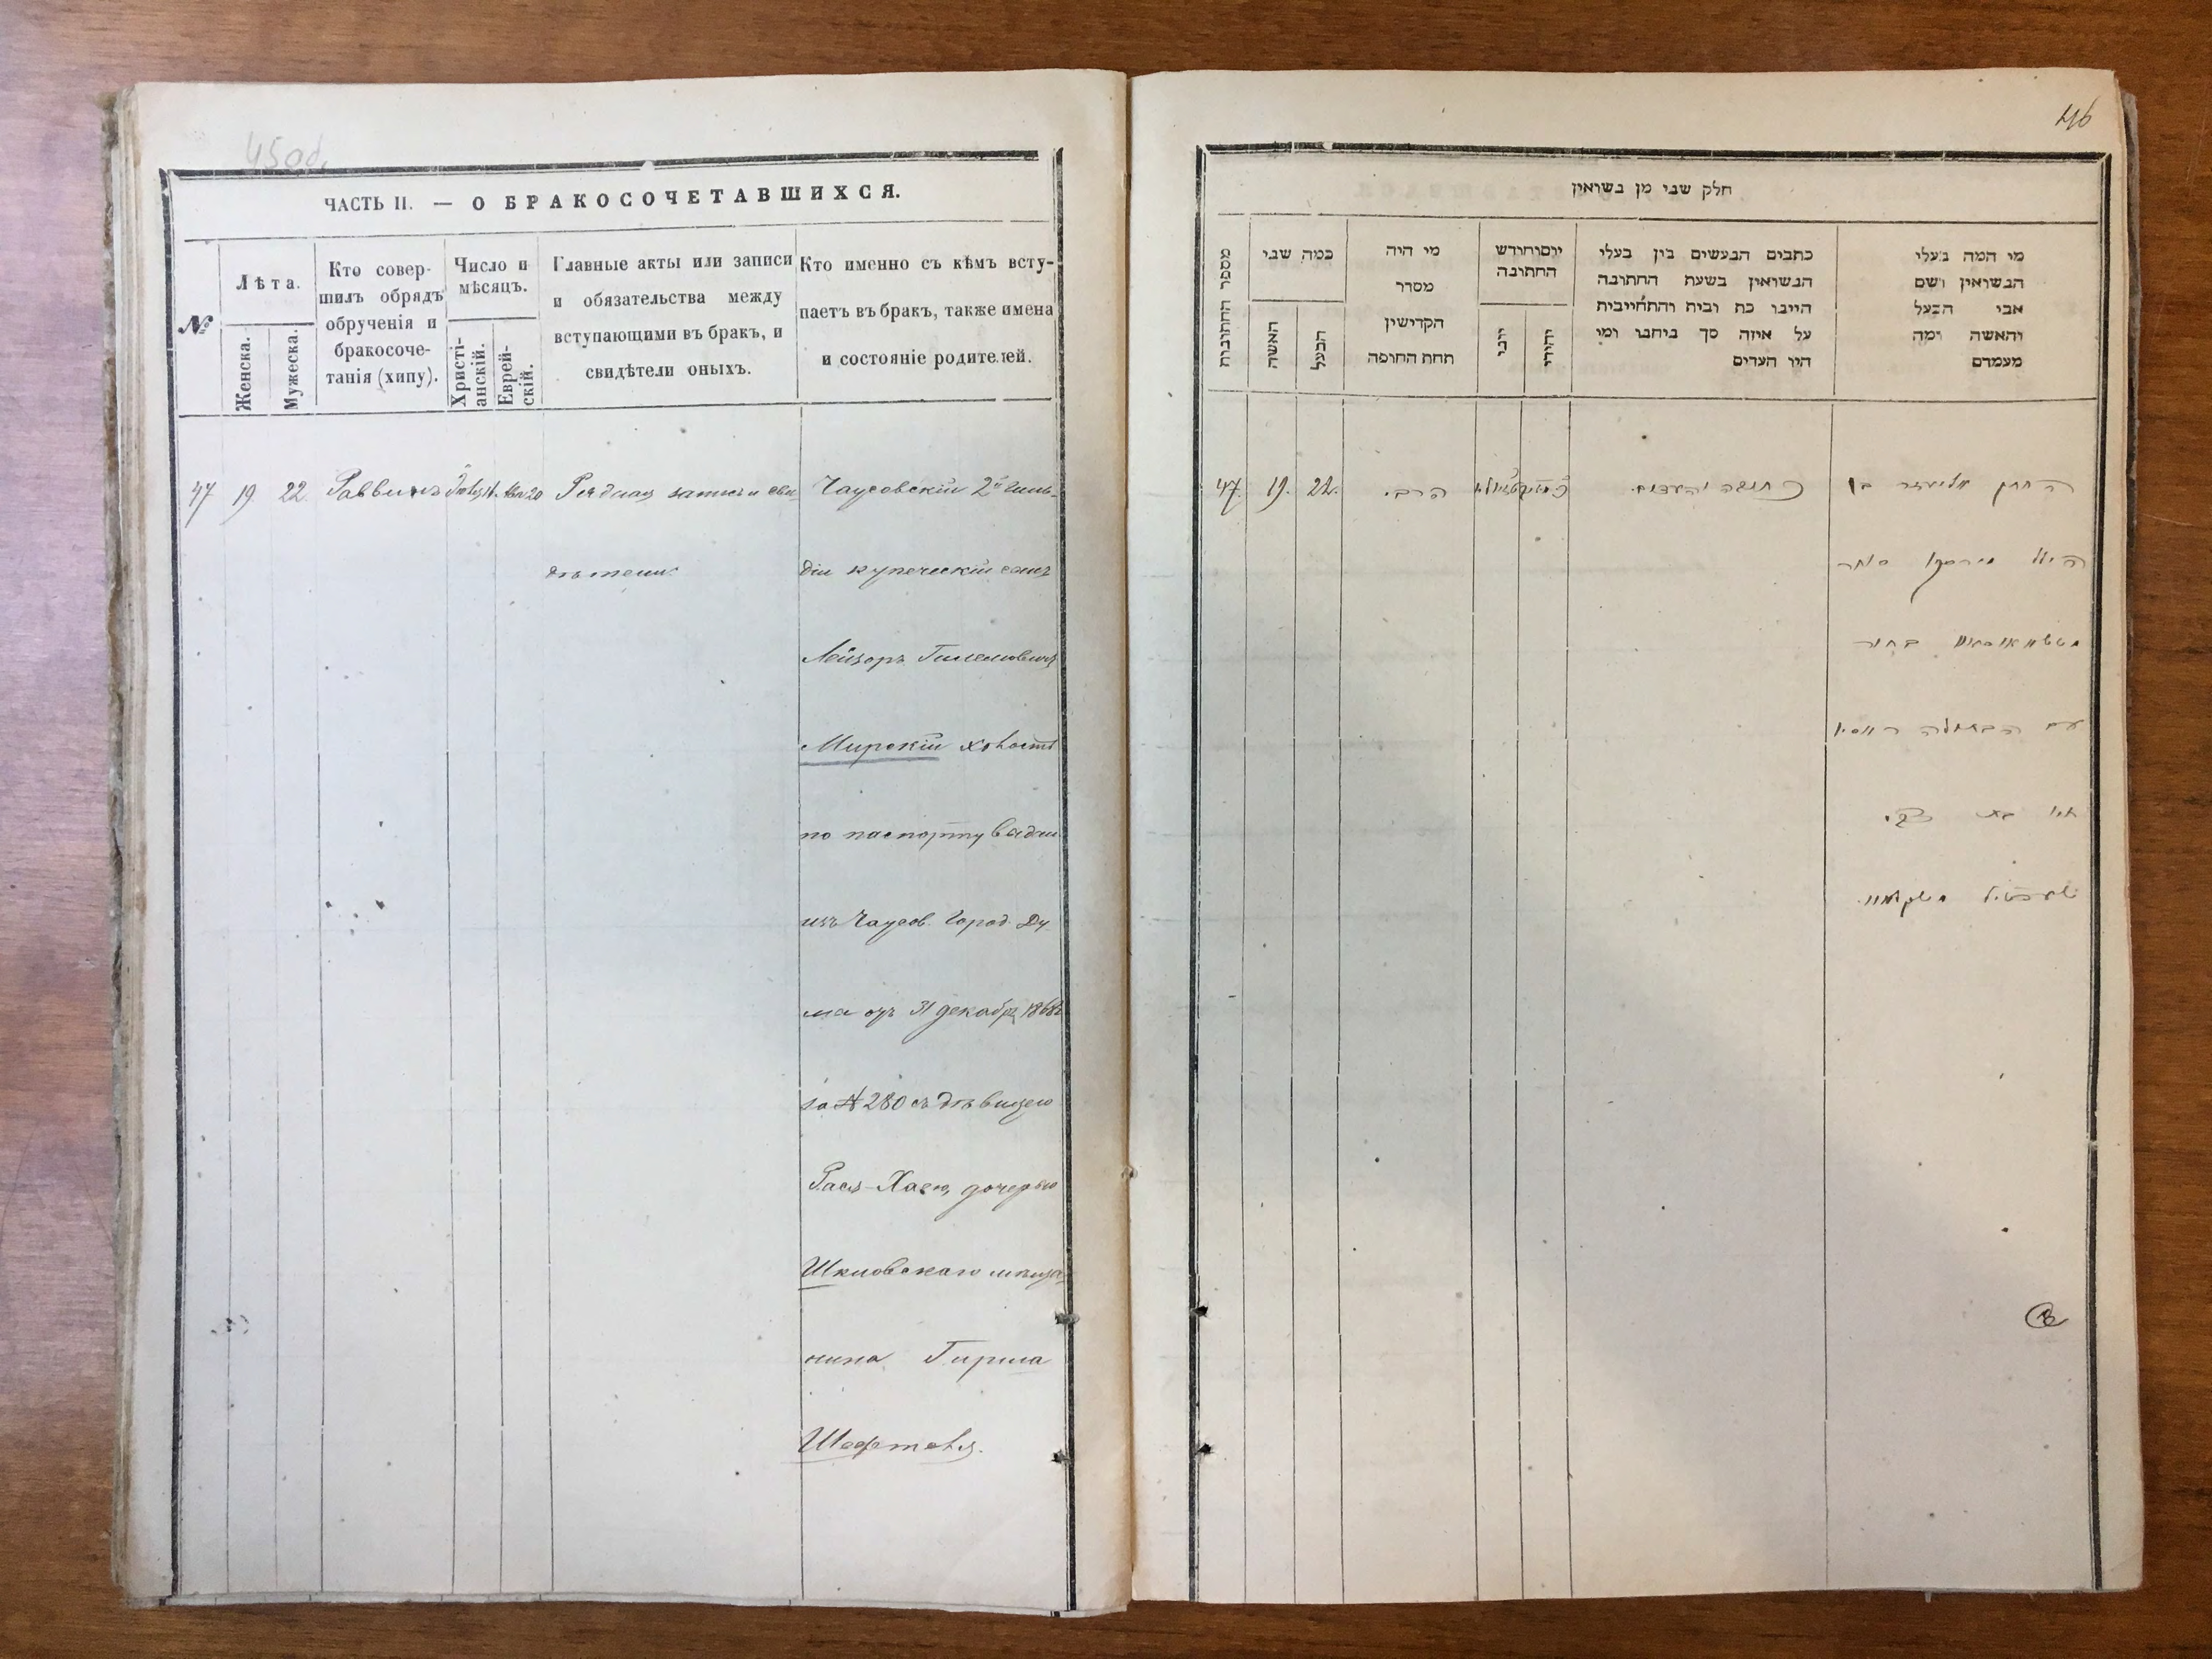 45 об.
ЧАСТЬ II. — О БРАКОСОЧЕТАВШИХСЯ.
№
Лѣта.
Женска.
Мужеска.
Кто совер-
шилъ обрядъ
обрученія и
бракосоче-
танія (хипу).
Число и
мѣсяцъ.
Христі-
анскій.
Еврей-
скій.
Главные акты или записи
и обязательства между
вступающими въ бракъ, и
свидѣтели оныхъ.
Кто именно съ кѣмъ всту-
паетъ въ бракъ, также имена
и состояніе родителей.
47
19.
22.
Раввинъ
20
Рядная запись и сви
дѣтели
Чаусовскій 2й гиль-
діи купеческій сынъ
Лейзоръ Гилелиовичъ
Мирскій холостъ
по паспорту выдан.
изъ Чаусов. Город. Ду
ма отъ 31 декабря 1868
за № 280 съ дѣвицею
Рася-Хаею, дочерью
Шкловскаго мѣща
нина Гирша
Шефтеля.
46
חלק שני מן נשואין
מספר החתונות
כמה שני
האשה
הבעל
מי היה
מסדר
הקדישין
תחת החופה
יוםוחודש
החתונה
יוני
יהודי
כתבים הנעשים בין בעלי
הנשואין בשעת החתונה
היינו כח ובית והתחייבית
על איזה סך ביחנו ומי
היו העדים
מי המה בעלי
הנשואין ושם
אבי הבעל
והאשה ומה
מעמדם
47.
19.
22.
הרבי.
החתן אליעזר בן
בחור
עם הבתולה
חיי בת צבי